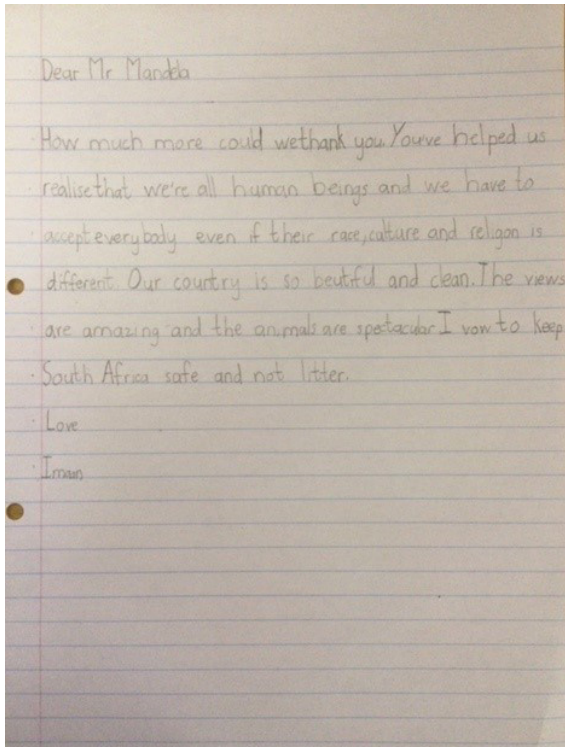 Dear Mr Mandela
How much more could wethank you. You've helped us
realise that we're all human beings and we have to
accept everybody even if their race, culture and religon is
different. Our country is so beutiful and clean. The views
are amazing and the animals are spectacular I vow to keep
South Africa safe and not litter.
Love
Iman